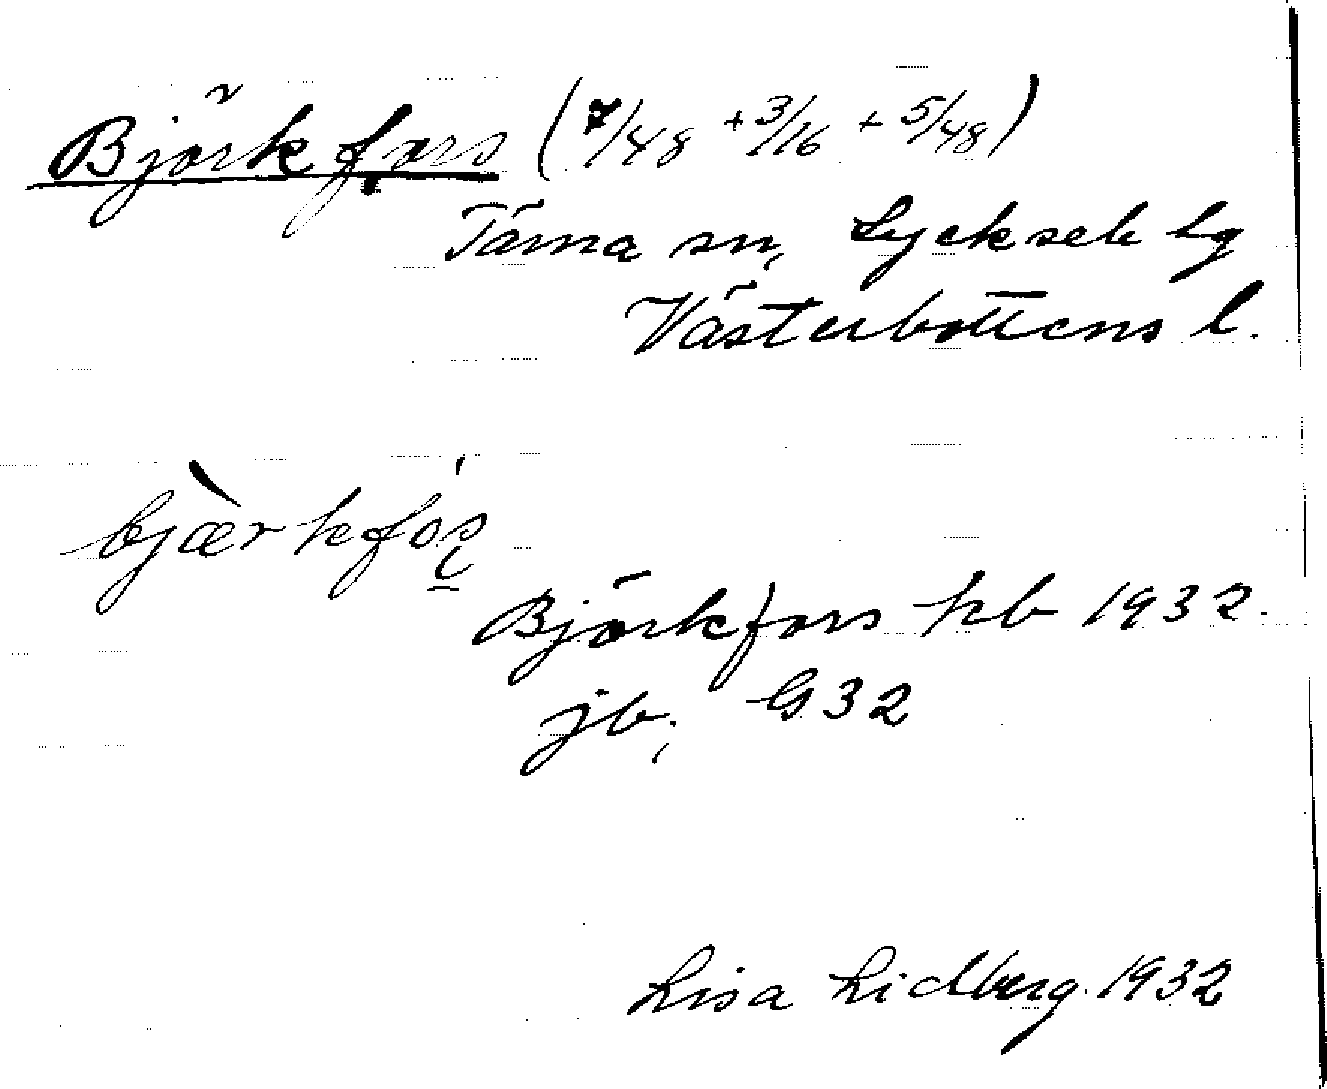 Björkfors (7/48 + 3/16 + 5/48)
Tärna sn, Lycksele lg
Västerbottens l.
bjærkfós
Björkfors hb 1932.
jb, G32
Lisa Lidberg 1932